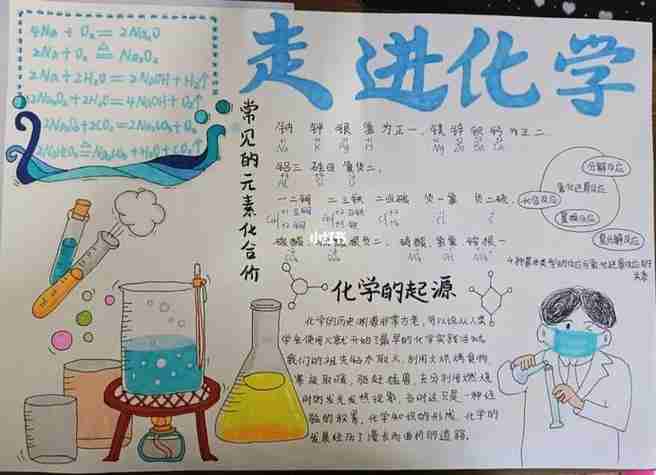 走进化学
4Na + O₂ = 2Na₂O
2Na + O₂ △= Na₂O₂
2Na + 2H₂O = 2NaOH + H₂↑
2Na₂O₂ + 2H₂O = 4NaOH + O₂↑
2Na₂O₂ + 2CO₂ = 2Na₂CO₃ + O₂
2NaHCO₃ △= Na₂CO₃ + H₂O + CO₂↑
常见的元素化合价
钠 钾 银 氢 为正一 镁 锌 钡 钙 为正二
Na K Ag H Mg Zn Ba Ca
铝三 硅四 氧负二
Al Si O
一二铜 二三铁 二四碳 负一氯 负二硫
硝酸 氢氧 铵根一
小红书
分解反应
氧化还原反应
化合反应
置换反应
复分解反应
4种基本类型的反应与氧化还原反应的
关系
化学的起源
化学的历史渊源非常古老,可以说从人类
学会使用火就开始了最早的化学实践活动。
我们的祖先钻木取火、利用火烘烤食物、
寒夜取暖、驱赶猛兽,充分利用燃烧
时的发光发热现象。当时这只是一种经
验的积累。化学知识的形成、化学的
发展经历了漫长而曲折的道路。